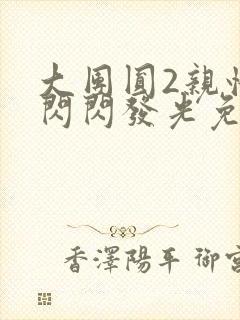 大團圓2親情
閃閃發光免
香澤陽平 御宮